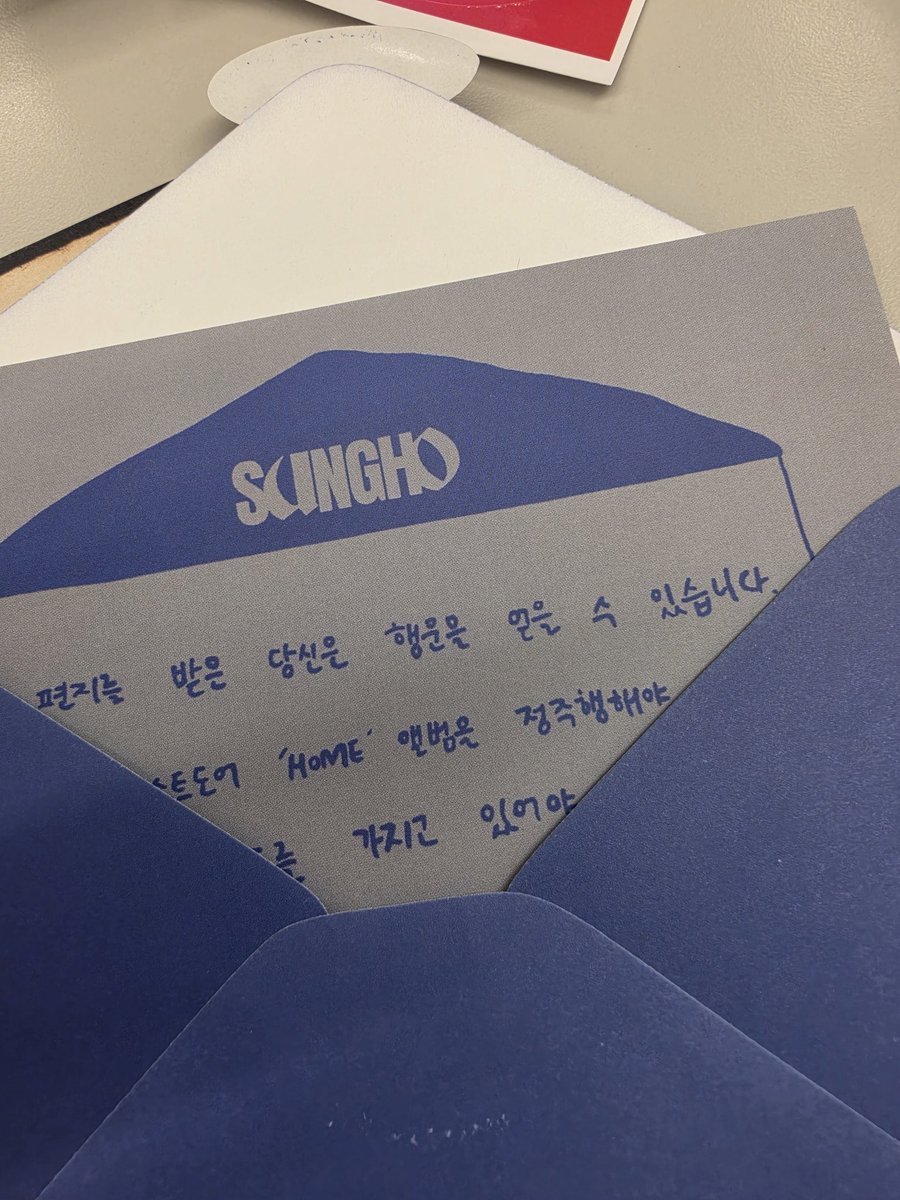 SUNGHO
편지를 받은 당신은 행운을 얻을 수 있습니다.
스트도어 'HOME' 앨범을 정주행해야
를 가지고 있어야